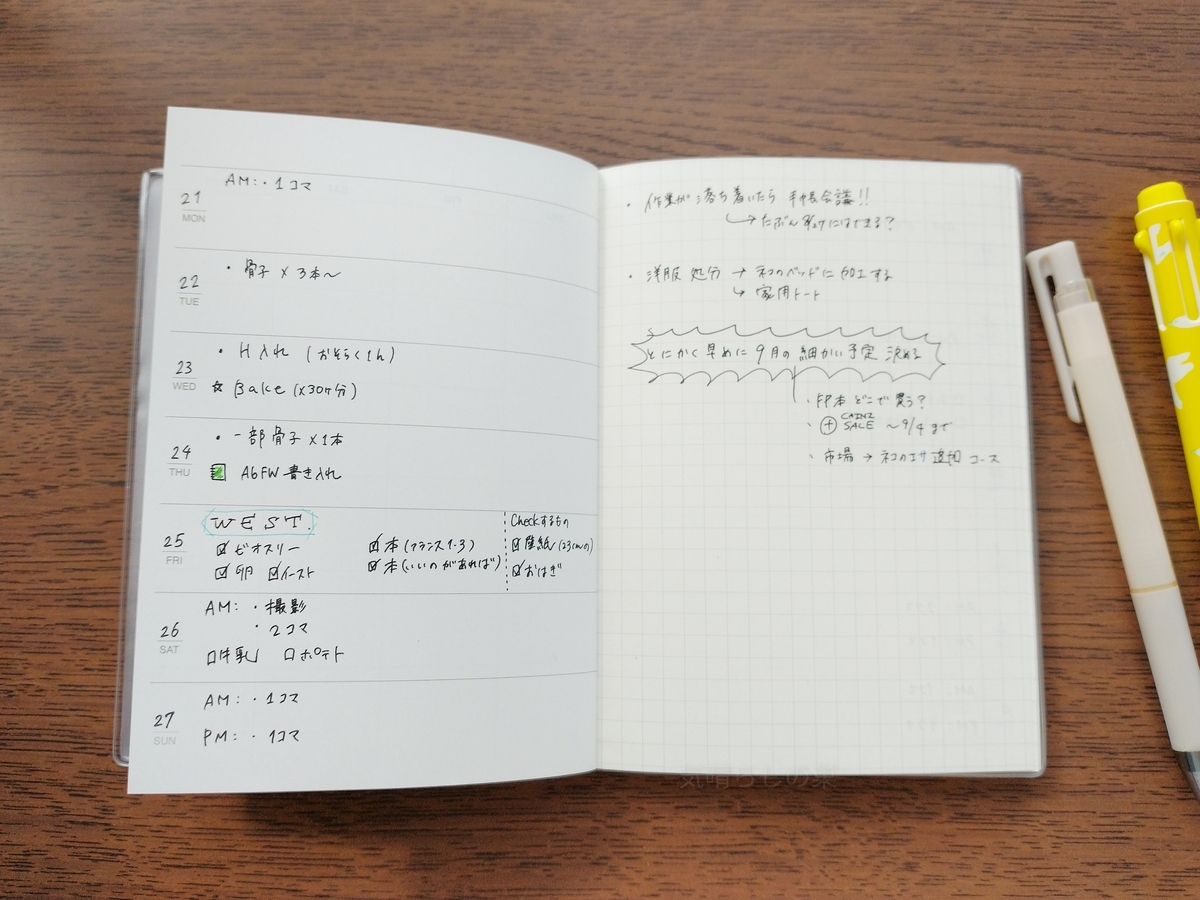 21
MON
AM:・1コマ
22
TUE
・骨子 × 3本〜
23
WED
・H入れ (おそらく1h)
☆ Bake (×30ヶ分)
24
THU
・一部骨子 ×1本
A6FW 書き入れ
25
FRI
WEST.
☑ビオスリー
☑卵 ☑イースト
☑本(フランス1-3)
☑本(いいのがあれば)
Checkするもの
☑壁紙(23cmの)
☑おはぎ
26
SAT
AM: ・撮影
・2コマ
□牛乳 □ポテト
27
SUN
AM: ・1コマ
PM: ・1コマ
・作業が落ち着いたら 手帳会議!!
↳たぶん にはできる?
・洋服 処分 → ネコのベッドに加工する
↳ 家用トート
とにかく早めに 9月の 細かい予定 決める
・ 本 どこで買う?
・⊕ CAINZ SALE 〜9/4まで
・市場 → ネコのエサ 追加 コース
気晴らしの葉